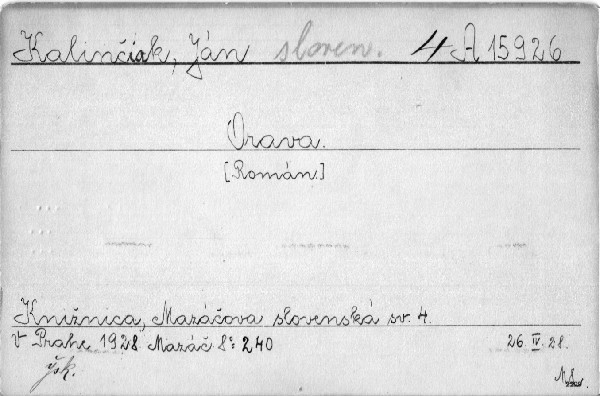 Kalinčiak, Ján sloven. 4 A 15926
Orava.
[Román.]
Knižnica, Mazáčova slovenská sv. 4.
V Prahe 1928 Mazáč 8: 240 26. IV. 28.